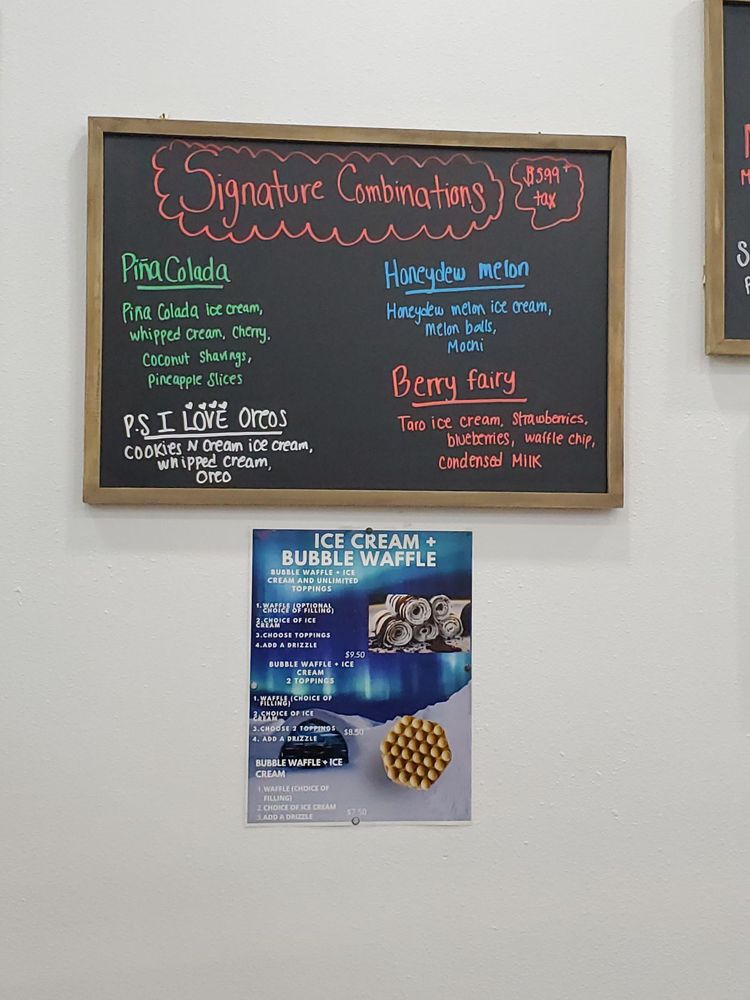 Signature Combinations
$5.99 + tax
Piña Colada
Piña Colada ice cream,
whipped cream, Cherry,
Coconut Shavings,
Pineapple Slices
P.S I LOVE Oreos
COOKIES N Cream ice cream,
whipped cream,
Oreo
Honeydew melon
Honeydew melon ice cream,
melon balls,
Mochi
Berry fairy
Taro ice cream, Strawberries,
blueberries, waffle chip,
Condensed MILK
ICE CREAM +
BUBBLE WAFFLE
BUBBLE WAFFLE + ICE
CREAM AND UNLIMITED
TOPPINGS
1.WAFFLE (OPTIONAL
CHOICE OF FILLING)
2.CHOICE OF ICE
CREAM
3.CHOOSE TOPPINGS
4.ADD A DRIZZLE
$9.50
BUBBLE WAFFLE + ICE
CREAM
2 TOPPINGS
1.WAFFLE (CHOICE OF
FILLING)
2.CHOICE OF ICE
CREAM
3.CHOOSE 2 TOPPINGS
4. ADD A DRIZZLE
$8.50
BUBBLE WAFFLE + ICE
CREAM
1.WAFFLE (CHOICE OF
FILLING)
2.CHOICE OF ICE CREAM
3.ADD A DRIZZLE
$7.50